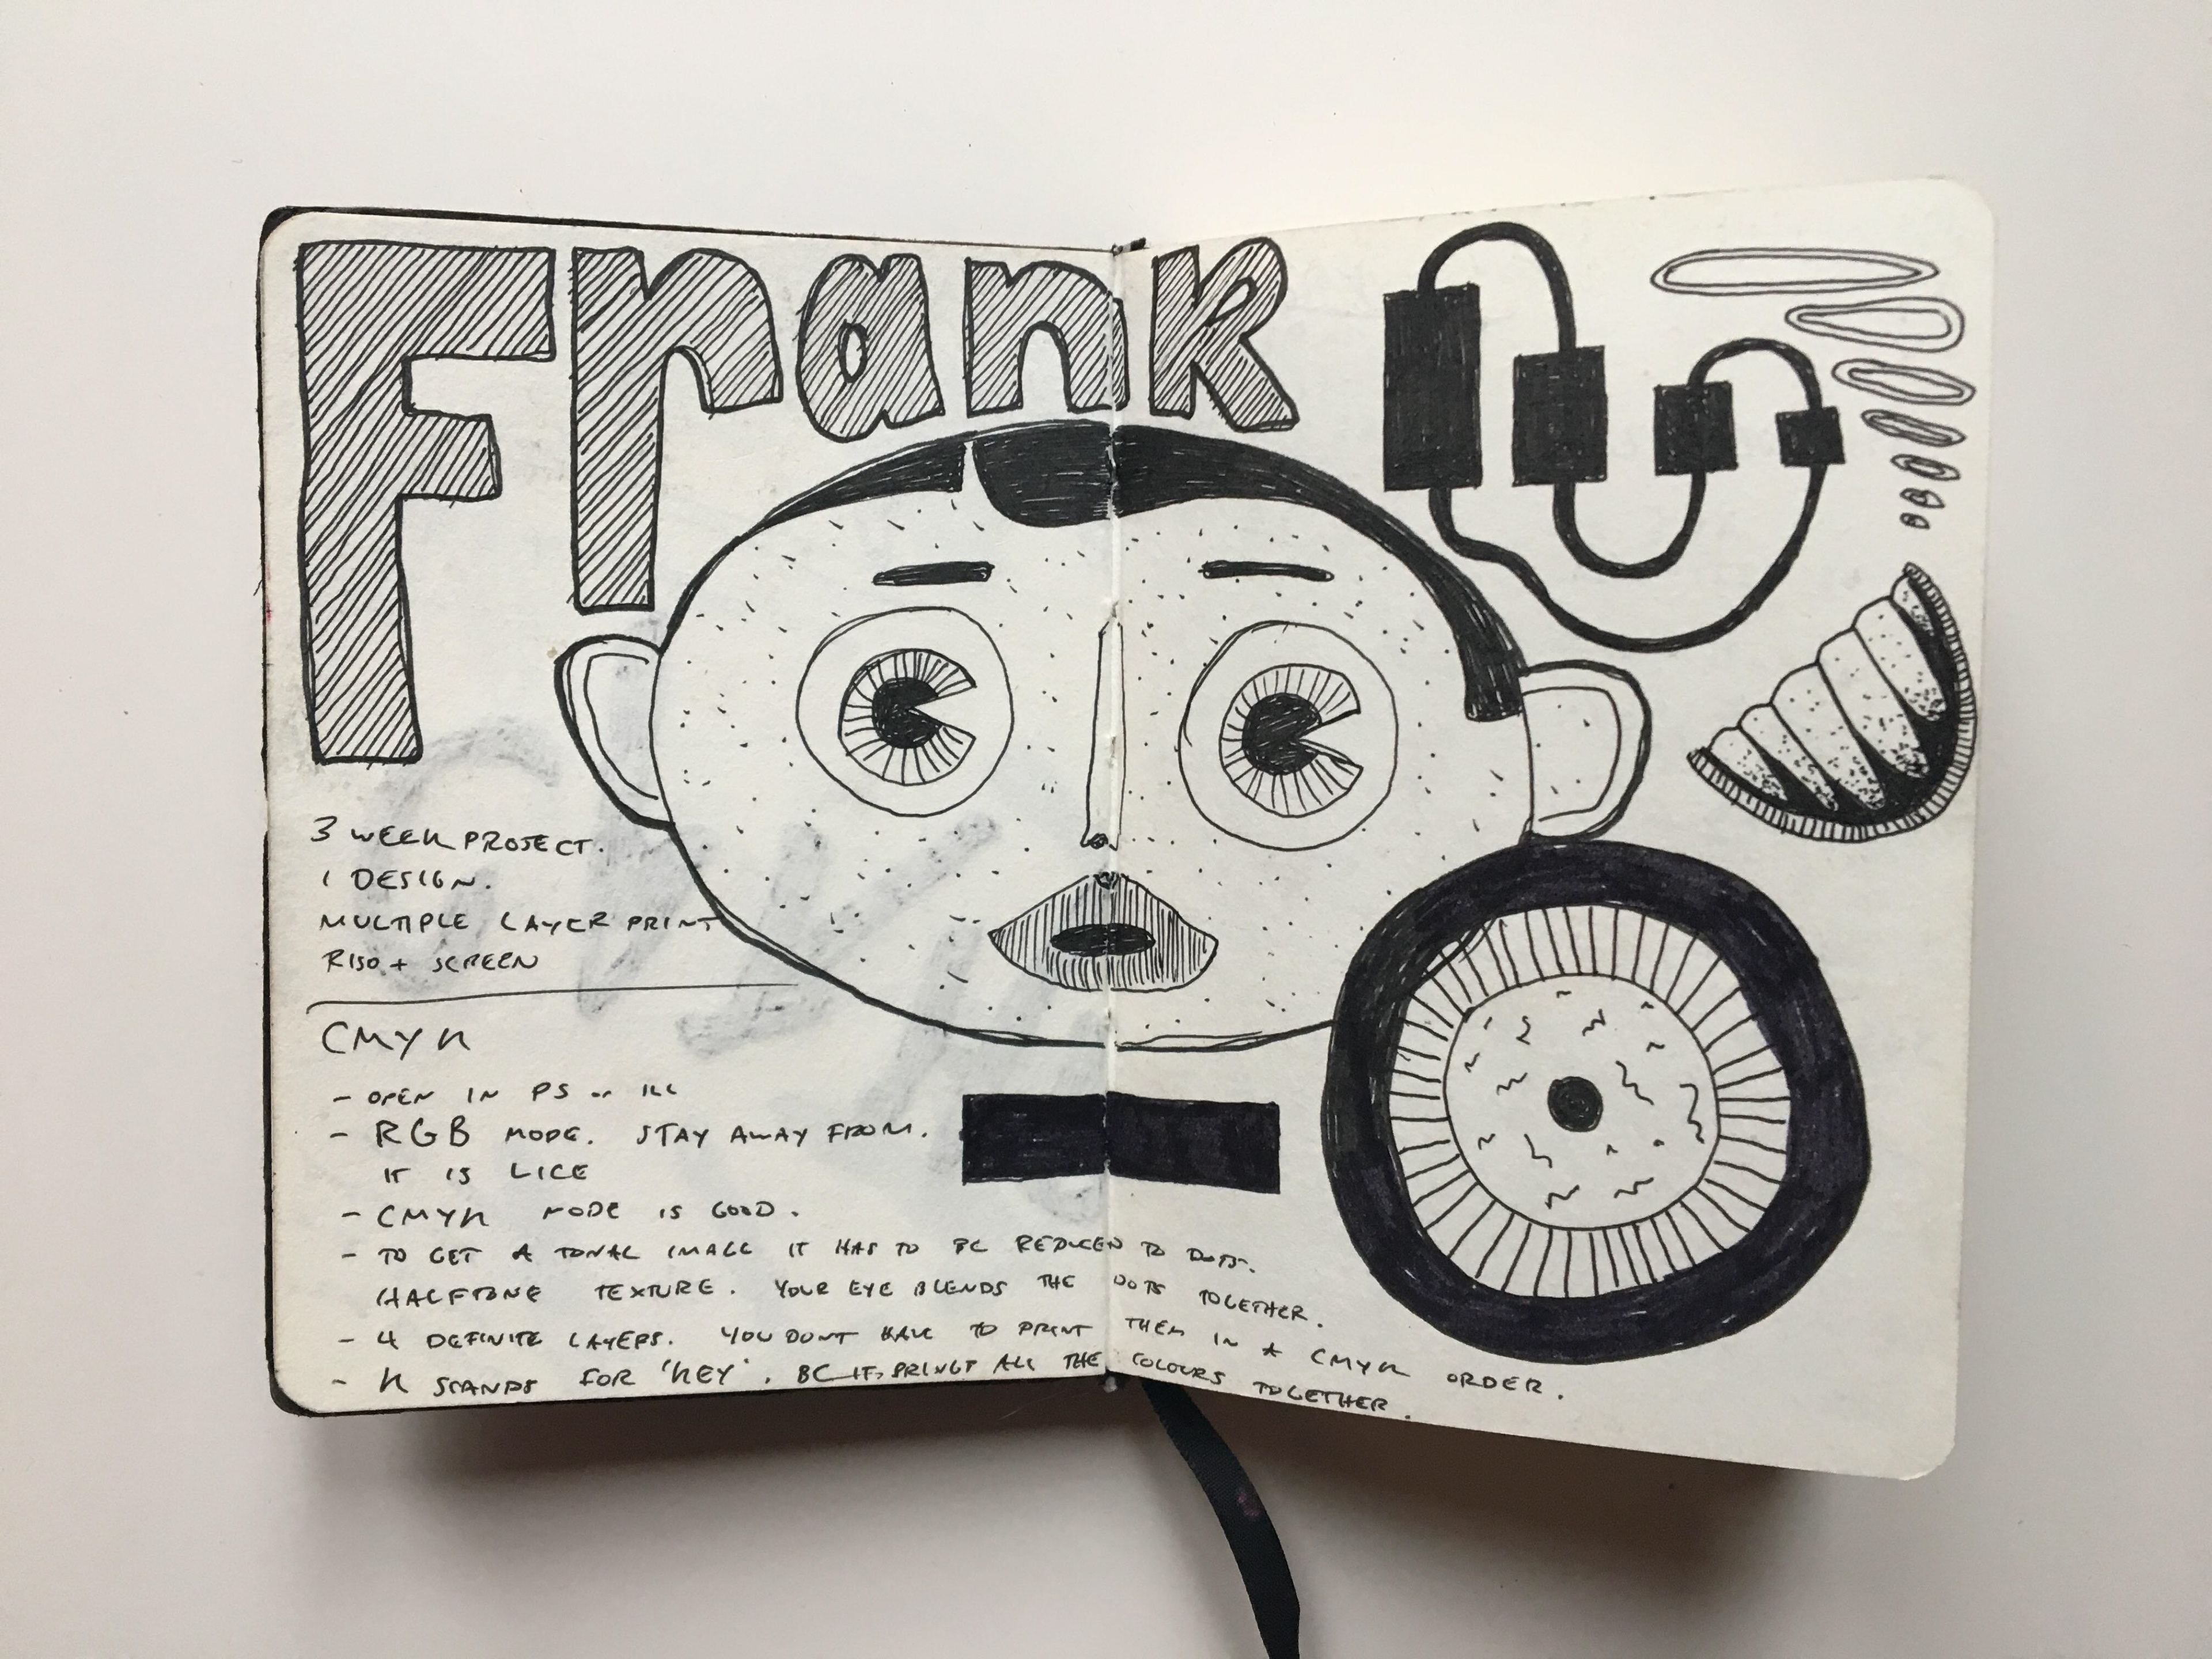 Frank
3 WEEK PROJECT.
1 DESIGN.
MULTIPLE LAYER PRINT
RISO + SCREEN
CMYK
- OPEN IN PS or ILL
- RGB MODE. STAY AWAY FROM.
IT IS LICE
- CMYK MODE IS GOOD.
- TO GET A TONAL IMAGE IT HAS TO BE REDUCED TO DOTS.
HALFTONE TEXTURE. YOUR EYE BLENDS THE DOTS TOGETHER.
- 4 DEFINITE LAYERS. YOU DONT HAVE TO PRINT THEM IN A CMYK ORDER.
- K STANDS FOR 'KEY'. BC IT BRINGS ALL THE COLOURS TOGETHER.